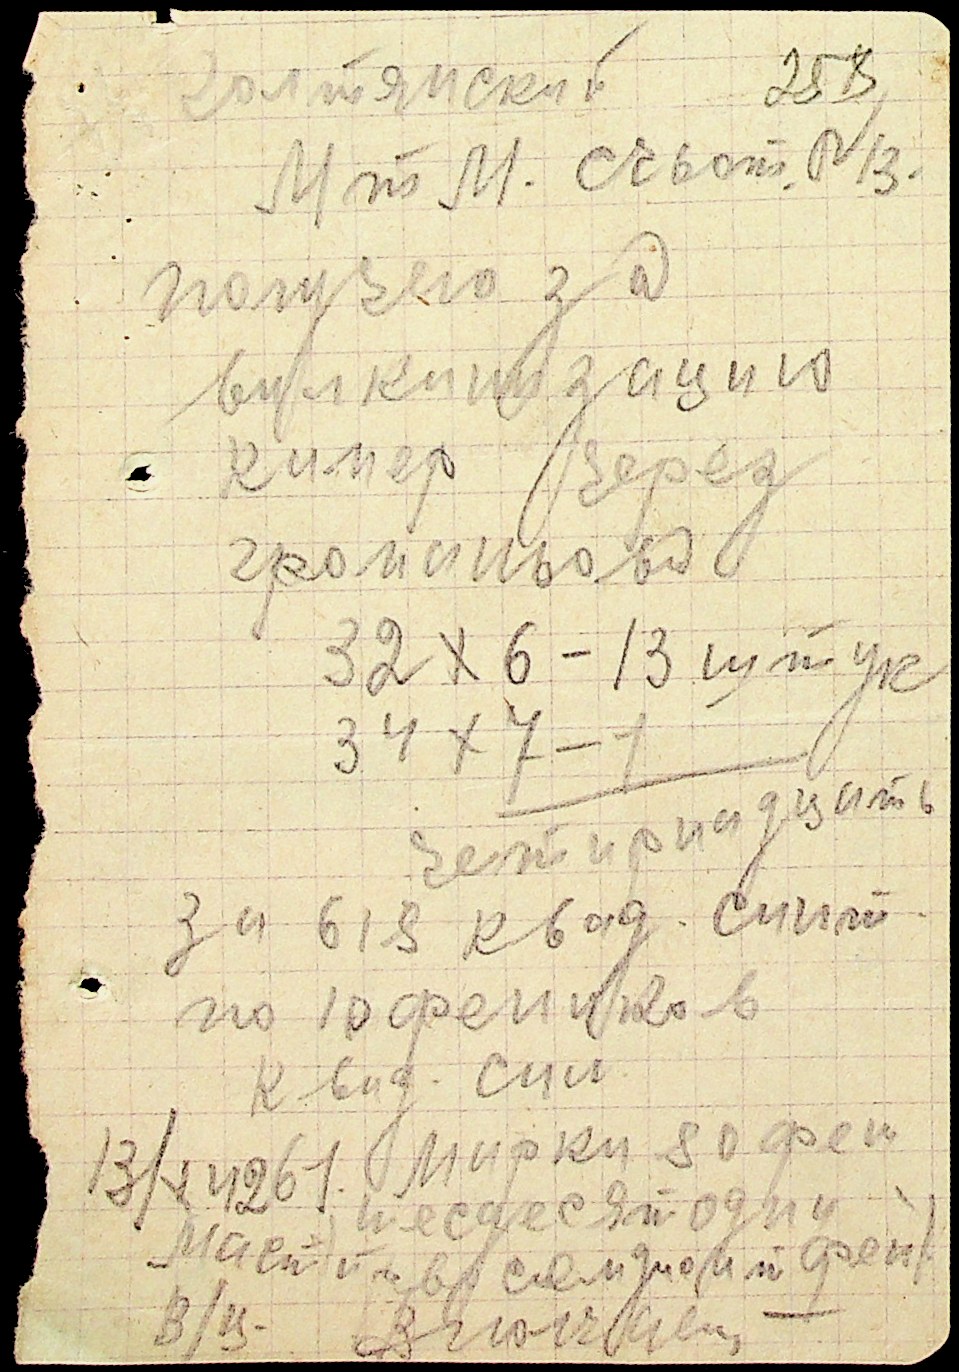 Голтянский 258
М т М. счьот. N 13.
получено за
вулкинизацию
кимер через
громаньова
32 х 6 - 13 штук
34 х 7 - 1
четирнадцать
за 618 квад. сант.
по 10 фенико в
квад. сан.
13/X 42 61. Марки 80 фен
шесдесят один
Мастир восемдисят фен
В/ц.